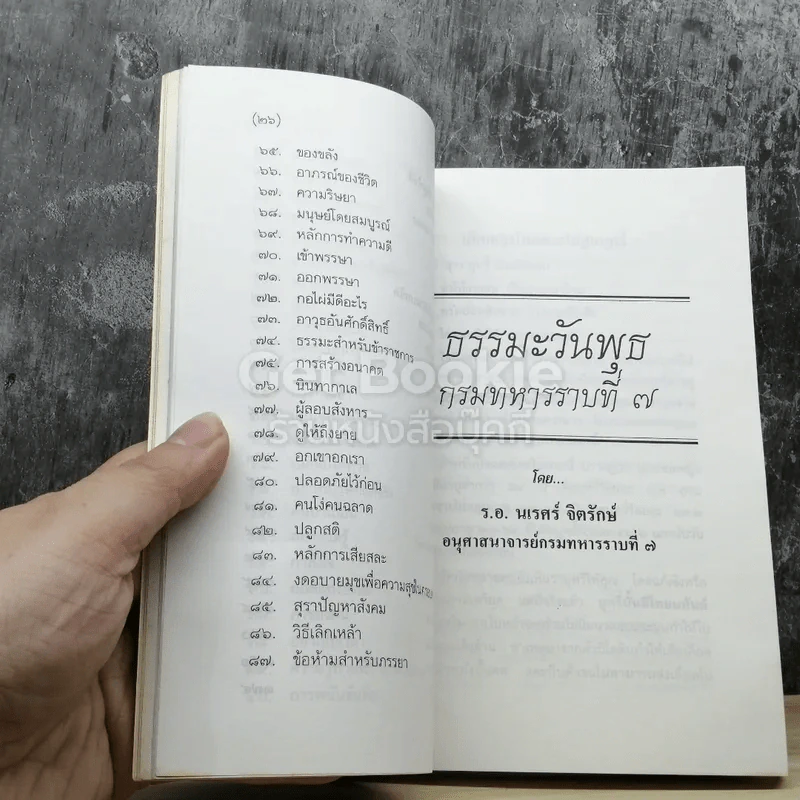 (๒๖)
๖๕. ของขลัง
๖๖. อาภรณ์ของชีวิต
๖๗. ความริษยา
๖๘. มนุษย์โดยสมบูรณ์
๖๙. หลักการทำความดี
๗๐. เข้าพรรษา
๗๑. ออกพรรษา
๗๒. กอไผ่มีดีอะไร
๗๓. อาวุธอันศักดิ์สิทธิ์
๗๔. ธรรมะสำหรับข้าราชการ
๗๕. การสร้างอนาคต
๗๖. นินทากาเล
๗๗. ผู้ลอบสังหาร
๗๘. ดูให้ถึงยาย
๗๙. อกเขาอกเรา
๘๐. ปลอดภัยไว้ก่อน
๘๑. คนโง่คนฉลาด
๘๒. ปลูกสติ
๘๓. หลักการเสียสละ
๘๔. งดอบายมุขเพื่อความสุขใน
๘๕. สุราปัญหาสังคม
๘๖. วิธีเลิกเหล้า
๘๗. ข้อห้ามสำหรับภรรยา
ธรรมะวันพุธ
กรมทหารราบที่ ๗
โดย...
ร.อ. นเรศร์ จิตรักษ์
อนุศาสนาจารย์กรมทหารราบที่ ๗
Get Bookie
ร้านหนังสือบุ๊คกี้